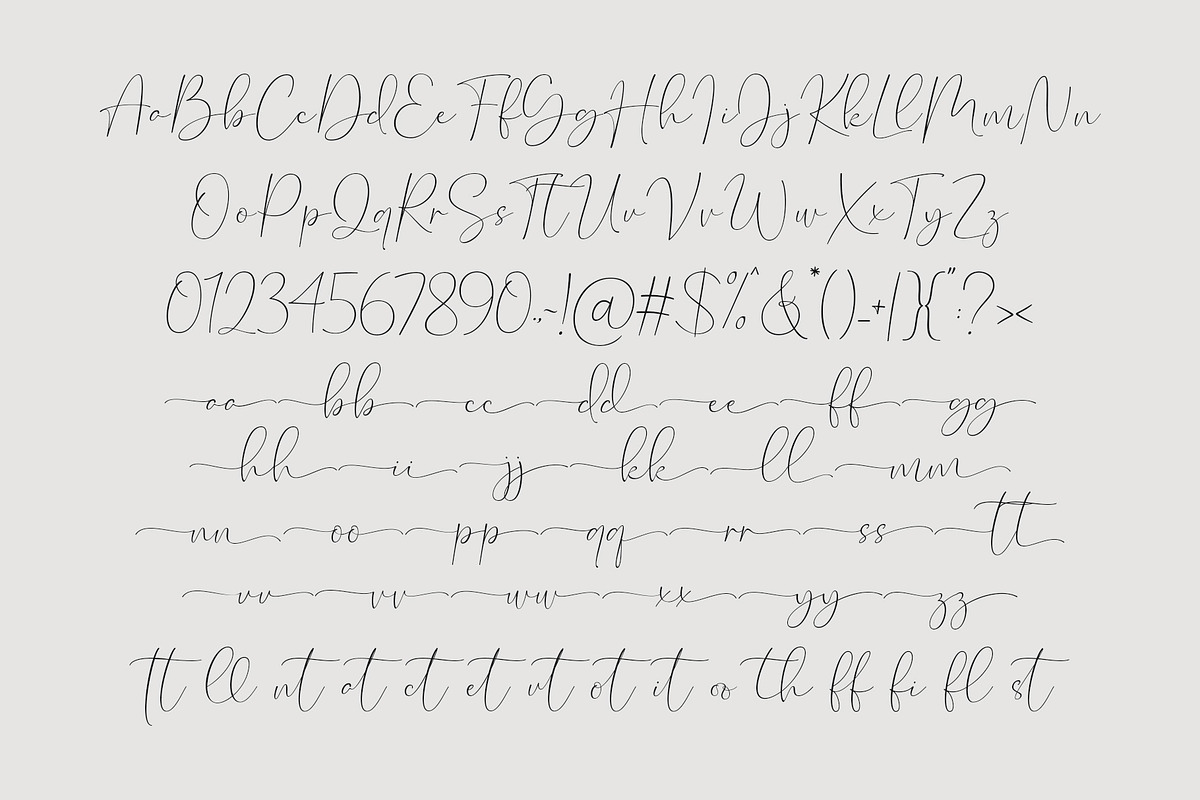 AaBbCcDdEeFfGgHhIiJjKkLlMmNn
OoPpQqRrSsTtUuVvWwXxTyZz
01234567890.,~!@#$%^&*()_+|}{":?><
aa bb cc dd ee ff gg
hh ii jj kk ll mm
nn oo pp qq rr ss tt
uu vv ww xx yy zz
tt ll nt at ct et ut ot it oo th ff fi fl st